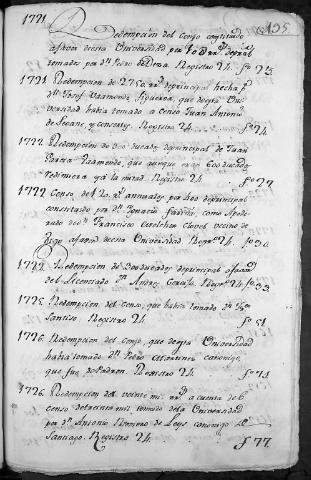 135
1721
Redempcion del Censo constituido
afavor deesta Universidad por
tomados por dn Pedro Registro 24. fo 23
1721. Redempcion de 2750 rs deprincipal hecha pr
dn Josef Varmonde, Figueroa, que deesta Uni-
versidad havia tomado a Censo Juan Antonio
de Seoane, y consortes. Registro 24. fo 24
1722. Redempcion de 300 ducados deprincipal de Juan
Parra Raamonde, que aunque eran 600 ducados,
redimiera ya la mitad. Registro 24 fo 27
1722. Censo, de 120 rs annuales por 300 deprincipal
constituido por dn Ignacio como Apode
rado de dn Francisco vecino de
Vigo afavor deesta Universidad Registro 24. fo 30
1722. Redempcion de 300 ducados deprincipal afavor
del Licenciado dn Andres Registro 24 fo 33
1725. Redempcion del Censo, que havia tomado dn
Santiso. Registro 24. fo 51
1726. Redempcion del Censo, que deesta Universidad
havia tomado dn Pedro canonigo,
que fue de Padron. Registro 24. fo 71
1726. Redempcion de veinte mil rs a cuenta del
Censo detreinta mil tomado dela Universidad
por dn Antonio Moreno de Leys canonigo de
Santiago. Registro 24. fo 77.